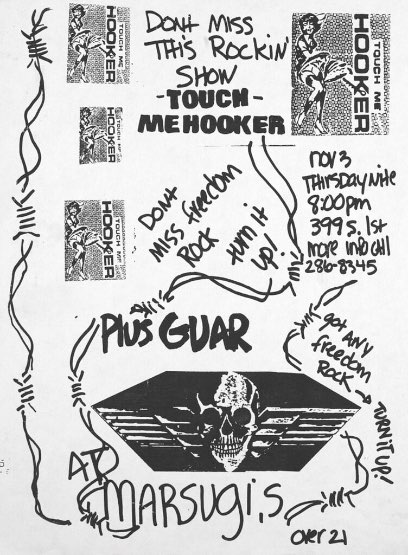 DON'T MISS
THIS ROCKIN'
SHOW
-TOUCH-
ME HOOKER
TOUCH ME
HOOKER
TOUCH ME
HOOKER
TOUCH ME
HOOKER
TOUCH ME
HOOKER
NOV 3
THIRSDAY NITE
8:00 pm
399 S. 1st
more info call
286-8345
DON'T
MISS FREEDOM
ROCK
TURN IT
UP!
PluS GUAR
got ANY
freedom
Rock
TURN IT UP!
AT
MARSUGI,S
over 21